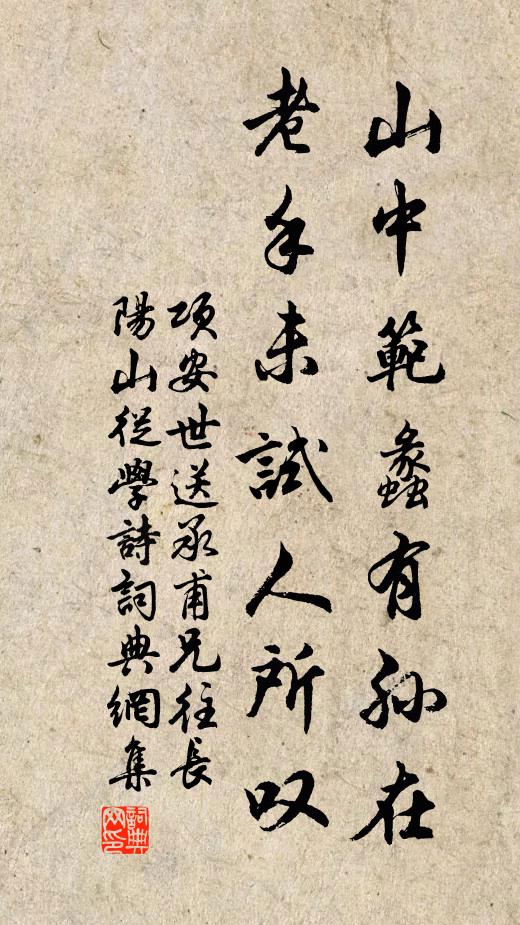 山中範蠡有孙在
老手未試人所叹
項安世送承甫兄往長
陽山從學詩詞典網集
詞典
网印